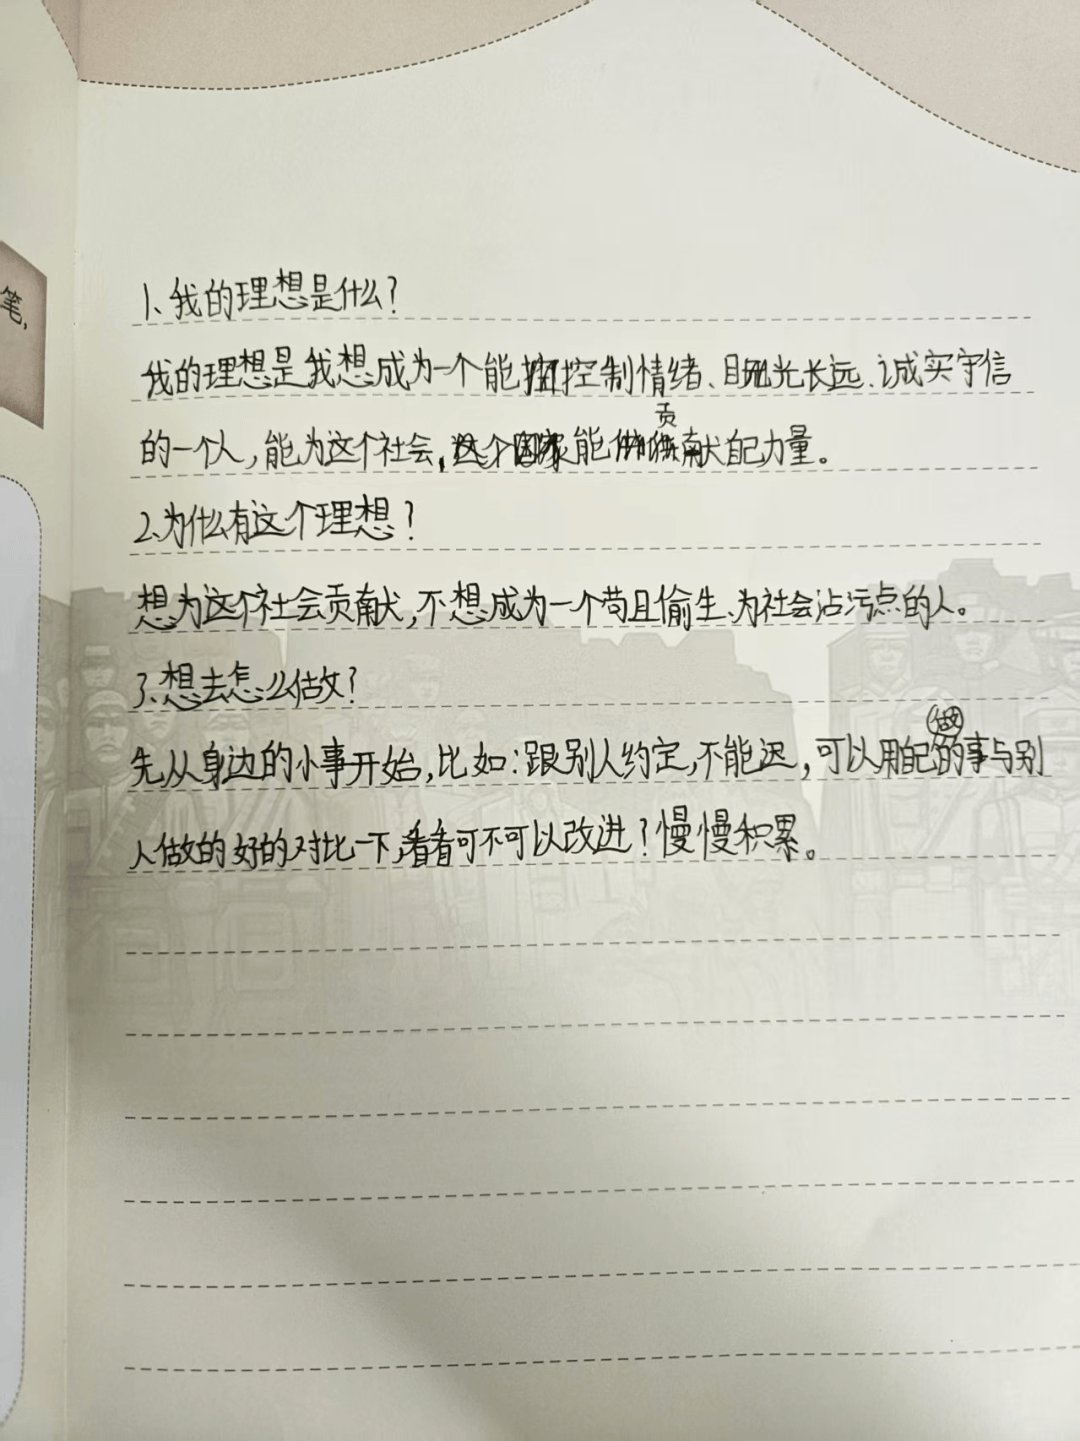 笔,
1、我的理想是什么?
我的理想是我想成为一个能控制情绪、目光长远、诚实守信
的一个人,能为这个社会,能贡献自己力量。
2、为什么有这个理想?
想为这个社会贡献,不想成为一个苟且偷生、为社会沾污点的人。
3、想去怎么做?
先从身边的小事开始,比如:跟别人约定,不能迟,可以用自己做的事与别
人做的好的对比一下,看看可不可以改进?慢慢积累。